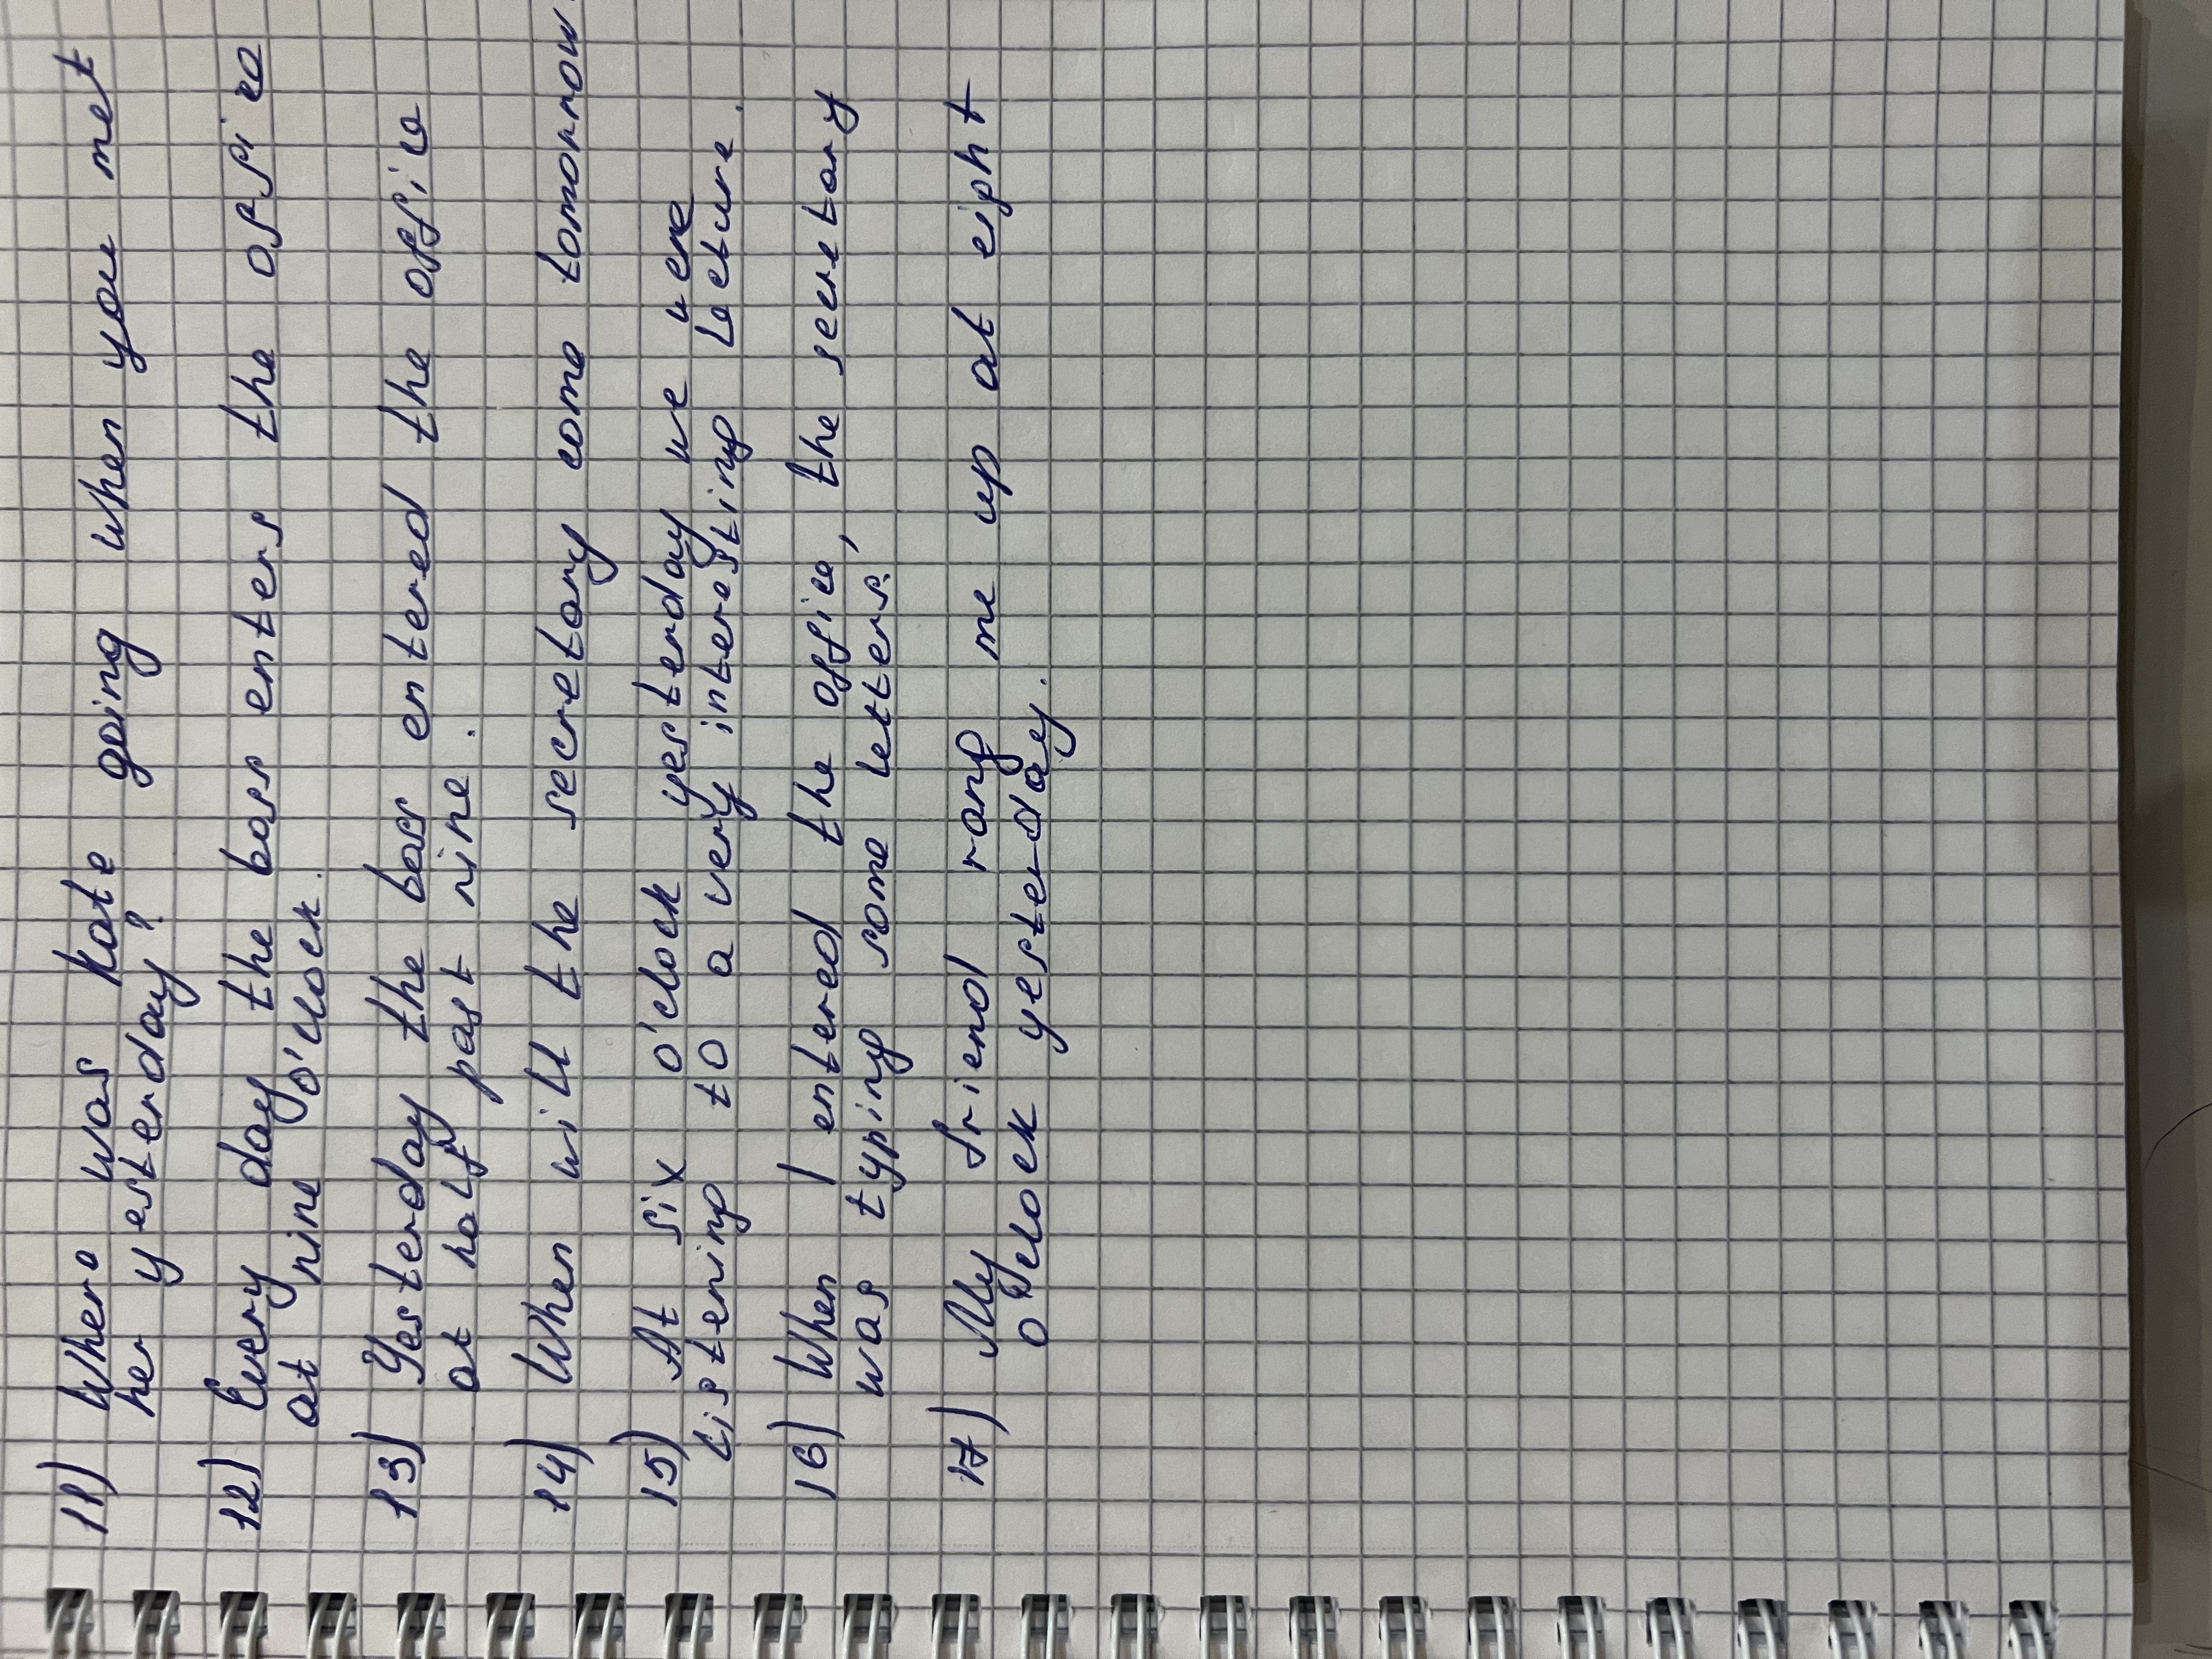 11) Where was Kate going when you met
her yesterday?
12) Every day the boss enters the office
at nine o'clock.
13) Yesterday the boss entered the office
at half past nine.
14) When will the secretary come tomorrow.
15) At six o'clock yesterday we were
listening to a very interesting lecture.
16) When I entered the office, the secretary
was typing some letters.
17) My friend rang me up at eight
o'clock yesterday.